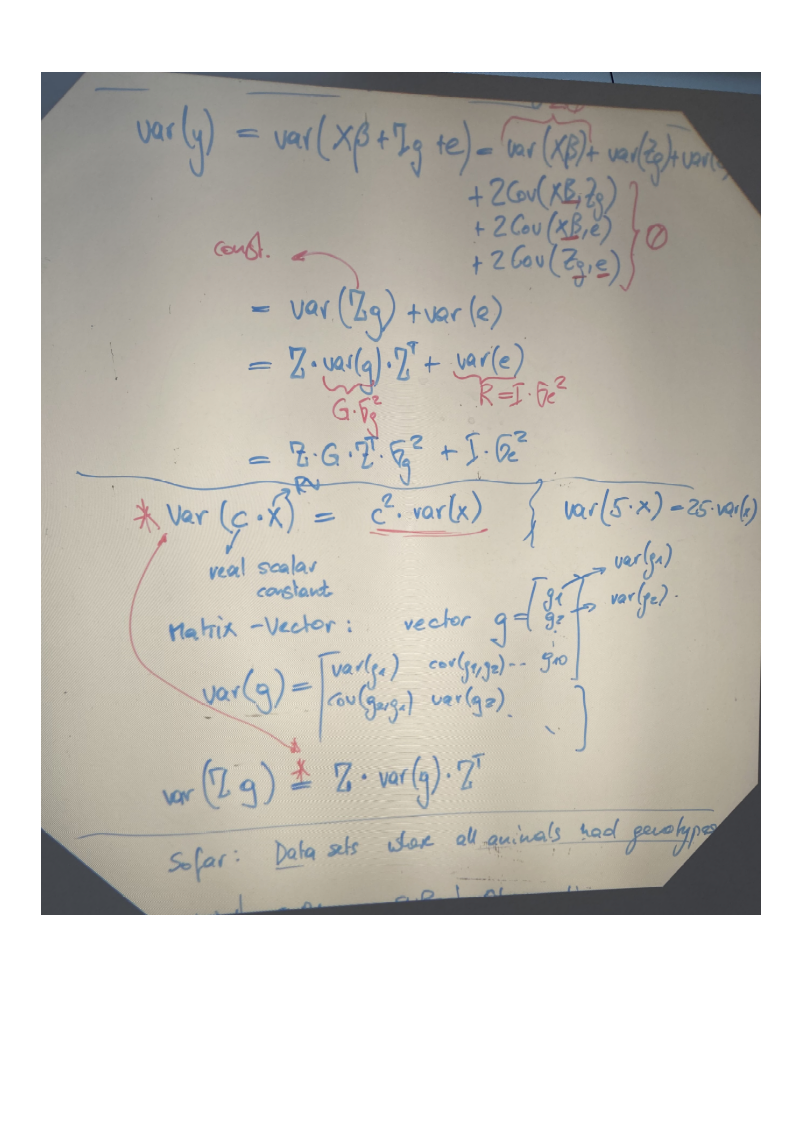 var(y) = var(Xβ + Zg + e) = var(Xβ) + var(Zg) + var(
+ 2Cov(Xβ, Zg)
+ 2Cov(Xβ, e) } 0
const.
+ 2Cov(Zg, e)
= var(Zg) + var(e)
= Z · var(g) · Z^T + var(e)
G·σg² R = I·σe²
= Z·G·Z^T·σg² + I·σe²
RV
* Var(c·X) = c²·var(x) var(5·x) = 25·var(x)
real scalar
constant
var(g1)
Matrix-Vector: vector g = [g1
g2 var(g2)
g10]
var(g) = [var(g1) cov(g1,g2) --
cov(g2,g1) var(g2) ]
*
var(Z g) = Z · var(g) · Z^T
So far: Data sets where all animals had genotypes